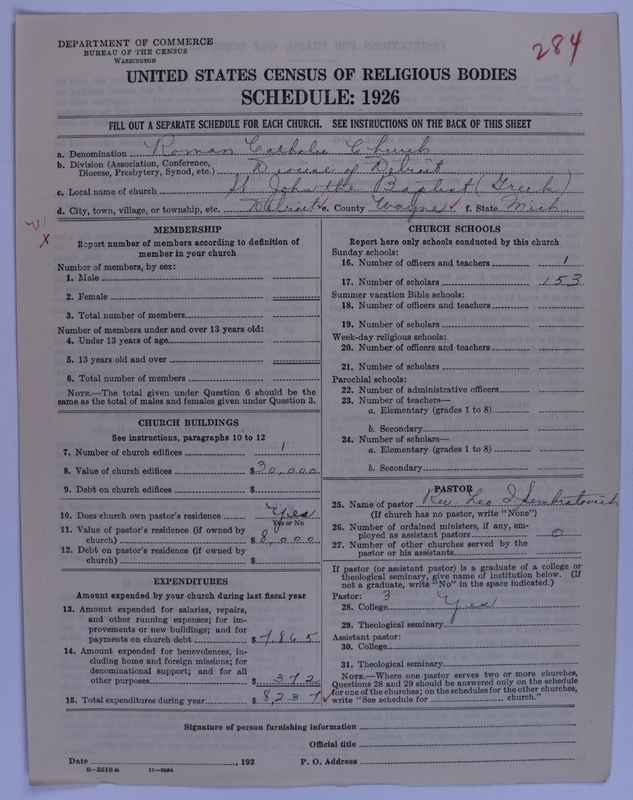 DEPARTMENT OF COMMERCE
BUREAU OF THE CENSUS
WASHINGTON
284
UNITED STATES CENSUS OF RELIGIOUS BODIES
SCHEDULE: 1926
FILL OUT A SEPARATE SCHEDULE FOR EACH CHURCH. SEE INSTRUCTIONS ON THE BACK OF THIS SHEET
a. Denomination Roman Catholic Church
b. Division (Association, Conference, Diocese, Presbytery, Synod, etc.) Diocese of Detroit
c. Local name of church St. John the Baptist (Greek)
d. City, town, village, or township, etc. Detroit ✓ e. County Wayne ✓ f. State Mich
X
MEMBERSHIP
Report number of members according to definition of
member in your church
Number of members, by sex:
1. Male
2. Female
3. Total number of members
Number of members under and over 13 years old:
4. Under 13 years of age
5. 13 years old and over
6. Total number of members
NOTE.—The total given under Question 6 should be the
same as the total of males and females given under Question 3.
CHURCH BUILDINGS
See instructions, paragraphs 10 to 12
7. Number of church edifices 1
8. Value of church edifices $ 30,000
9. Debt on church edifices $
10. Does church own pastor's residence Yes
Yes or No
11. Value of pastor's residence (if owned by
church) $ 8,000
12. Debt on pastor's residence (if owned by
church) $
EXPENDITURES
Amount expended by your church during last fiscal year
13. Amount expended for salaries, repairs,
and other running expenses; for im-
provements or new buildings; and for
payments on church debt $ 7,865
14. Amount expended for benevolences, in-
cluding home and foreign missions; for
denominational support; and for all
other purposes $ 372
15. Total expenditures during year $ 8,237 ✓
CHURCH SCHOOLS
Report here only schools conducted by this church
Sunday schools:
16. Number of officers and teachers 1
17. Number of scholars 153
Summer vacation Bible schools:
18. Number of officers and teachers
19. Number of scholars
Week-day religious schools:
20. Number of officers and teachers
21. Number of scholars
Parochial schools:
22. Number of administrative officers
23. Number of teachers—
a. Elementary (grades 1 to 8)
b. Secondary
24. Number of scholars—
a. Elementary (grades 1 to 8)
b. Secondary
PASTOR
25. Name of pastor Rev. Leo I. Sembratovich
(If church has no pastor, write "None")
26. Number of ordained ministers, if any, em-
ployed as assistant pastors 0
27. Number of other churches served by the
pastor or his assistants
If pastor (or assistant pastor) is a graduate of a college or
theological seminary, give name of institution below. (If
not a graduate, write "No" in the space indicated.)
Pastor: 3
28. College Yes
29. Theological seminary
Assistant pastor:
30. College
31. Theological seminary
NOTE.—Where one pastor serves two or more churches,
Questions 28 and 29 should be answered only on the schedule
for one of the churches; on the schedules for the other churches,
write "See schedule for church."
Signature of person furnishing information
Official title
Date , 192 P. O. Address
8—5518 a 11—9084